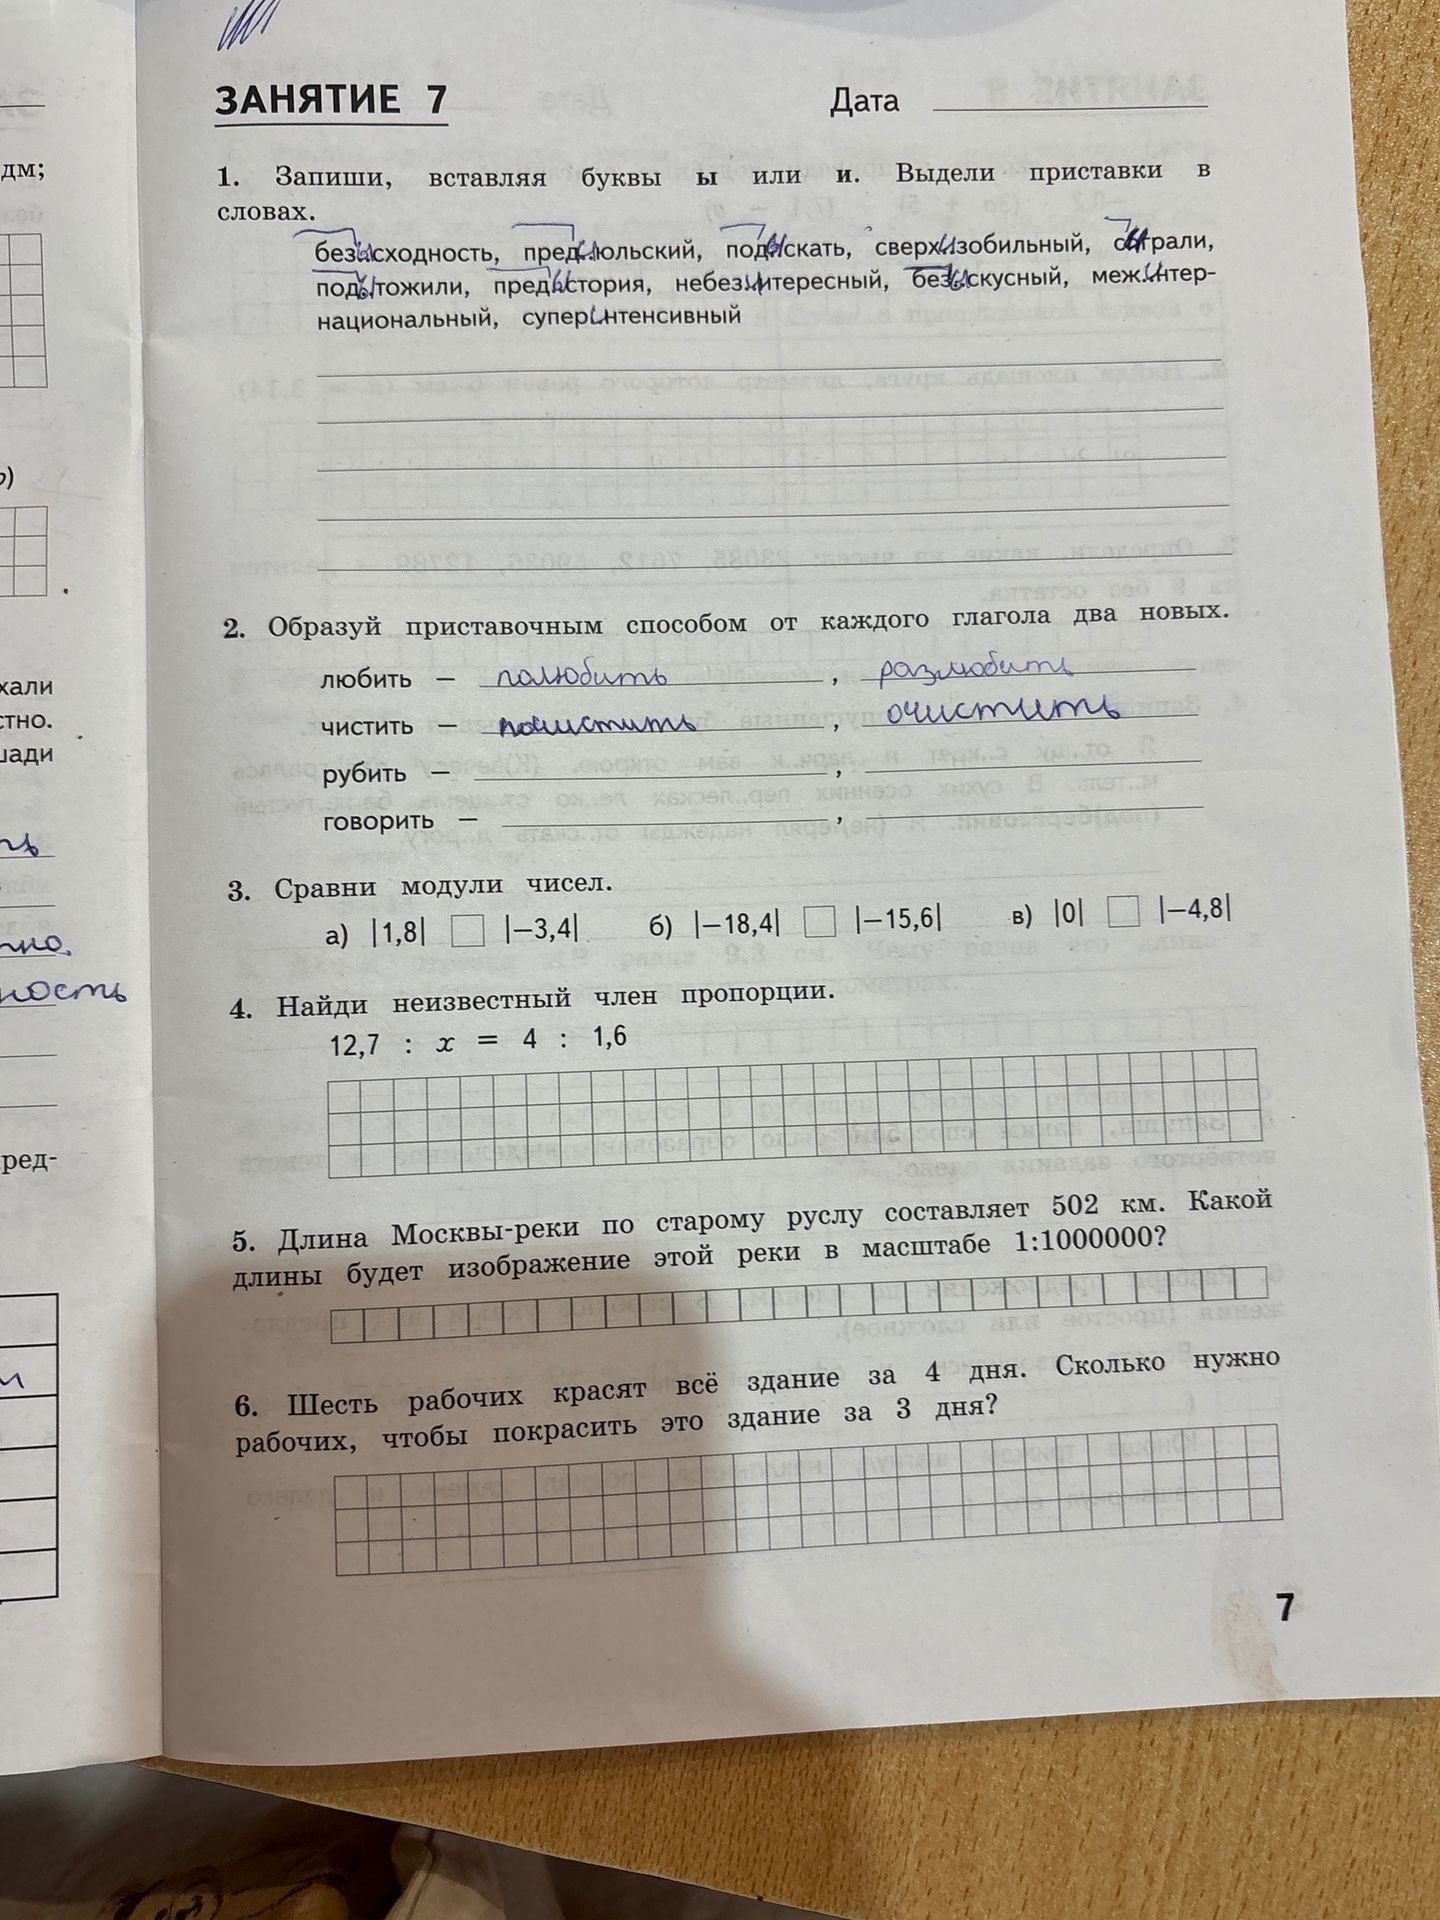 дм;
о)
хали
стно.
щади
ть
тно.
ность
пред-
ЗАНЯТИЕ 7 Дата
1. Запиши, вставляя буквы ы или и. Выдели приставки в
словах.
безысходность, предыюльский, подыскать, сверхизобильный, сыграли,
подытожили, предыстория, небезынтересный, безыскусный, межинтер-
национальный, суперинтенсивный
2. Образуй приставочным способом от каждого глагола два новых.
любить — полюбить, разлюбить
чистить — почистить, очистить
рубить — ,
говорить — ,
3. Сравни модули чисел.
а) |1,8| □ |−3,4| б) |−18,4| □ |−15,6| в) |0| □ |−4,8|
4. Найди неизвестный член пропорции.
12,7 : x = 4 : 1,6
5. Длина Москвы-реки по старому руслу составляет 502 км. Какой
длины будет изображение этой реки в масштабе 1:1000000?
6. Шесть рабочих красят всё здание за 4 дня. Сколько нужно
рабочих, чтобы покрасить это здание за 3 дня?
7